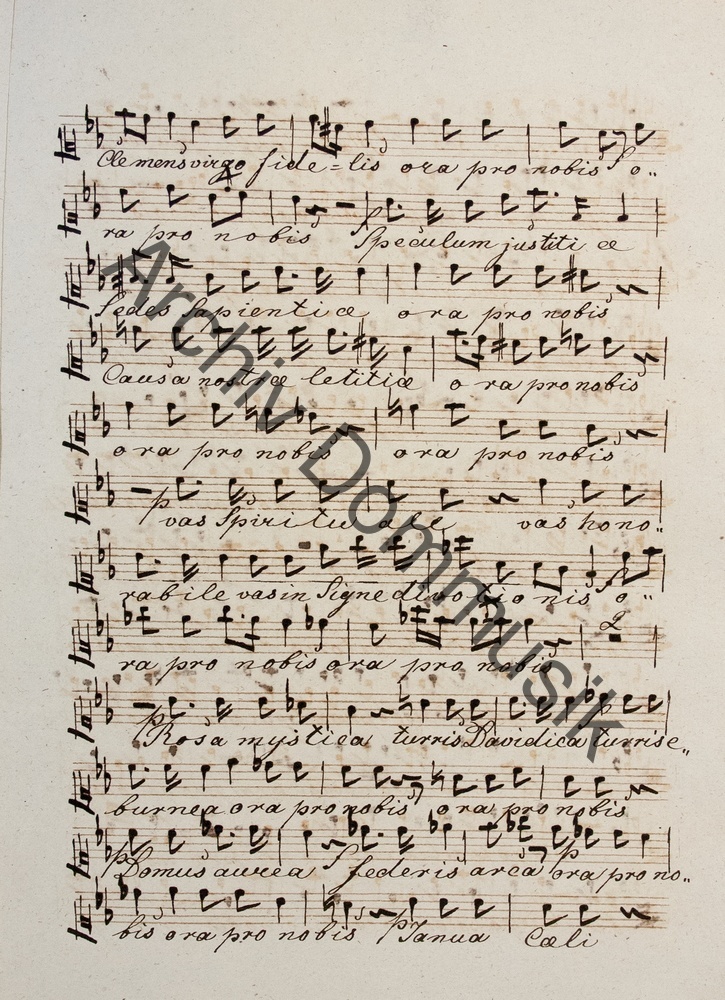 Clemens virgo fide=lis ora pro nobis o„
ra pro nobis Speculum justitiae
Sedes Sapientiae ora pro nobis
Causa nostrae letitiae ora pro nobis
ora pro nobis ora pro nobis
p vas Spirituale vas hono„
rabile vas in Signe divotionis o„
2
ra pro nobis ora pro nobis
p Rosa mystica turris Davidica turris e„
burnea ora pro nobis ora pro nobis
p Domus aurea f federis arca p ora pro no„
bis ora pro nobis p Janua Caeli
Archiv Dommusik